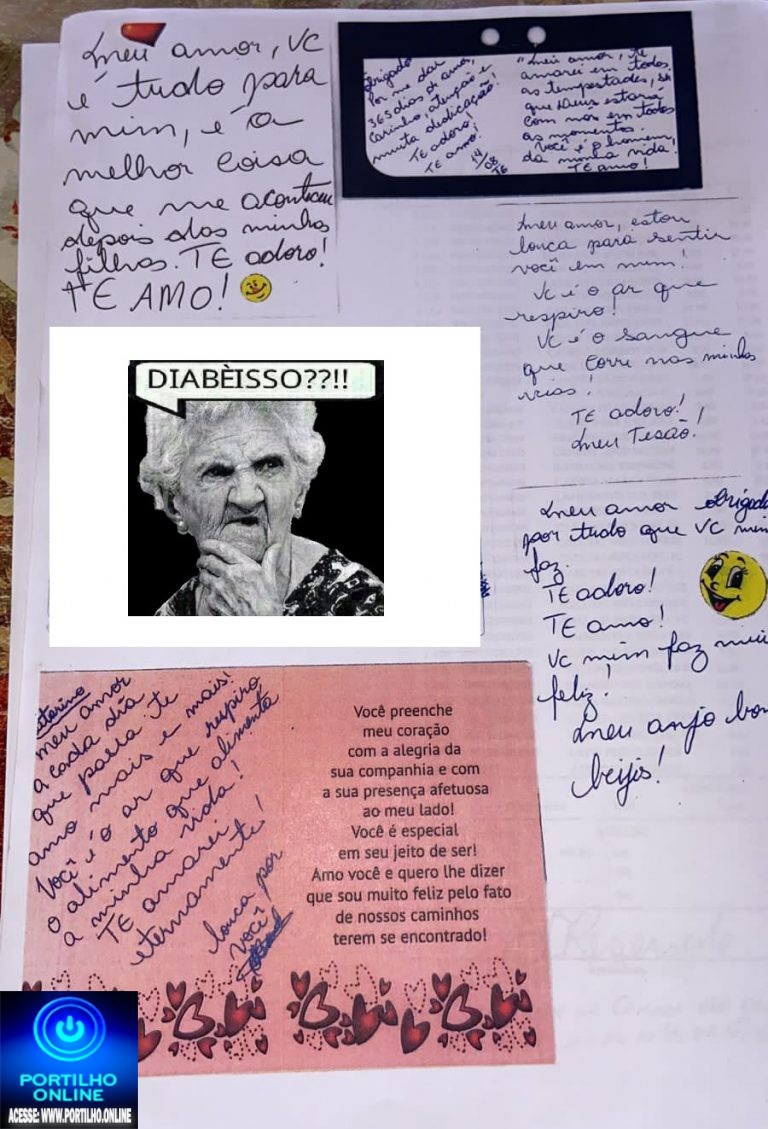 Meu amor, vc
é tudo para
mim, é a
melhor coisa
que me aconteceu
depois das minhas
filhas. TE adoro!
TE AMO!
Obrigado
Por me dar
365 dias de amor,
Carinho, atenção e
muita dedicação!
TE adoro!
TE amo!
14/08/16
"Meu amor, te
amarei em todas
as tempestades, sei
que Deus estará
com nós em todos
os momentos.
Você é o homem
da minha vida!
TE amo!
Meu amor, estou
louca para sentir
você em mim!
Vc é o ar que
respiro!
Vc é o sangue
que corre nas minhas
veias!
TE adoro!
Meu Tesão!
DIABÈISSO??!!
Meu amor obrigada
por tudo que vc mim
faz.
TE adoro!
TE amo!
Vc mim faz mui
feliz!
Meu anjo bom
beijis!
meu amor
a cada dia
que passa te
amo mais e mais!
Você é o ar que respiro
o alimento que alimenta
a minha vida!
TE amarei
eternamente!
louca por
você!
Você preenche
meu coração
com a alegria da
sua companhia e com
a sua presença afetuosa
ao meu lado!
Você é especial
em seu jeito de ser!
Amo você e quero lhe dizer
que sou muito feliz pelo fato
de nossos caminhos
terem se encontrado!
PORTILHO
ONLINE
ACESSE: WWW.PORTILHO.ONLINE